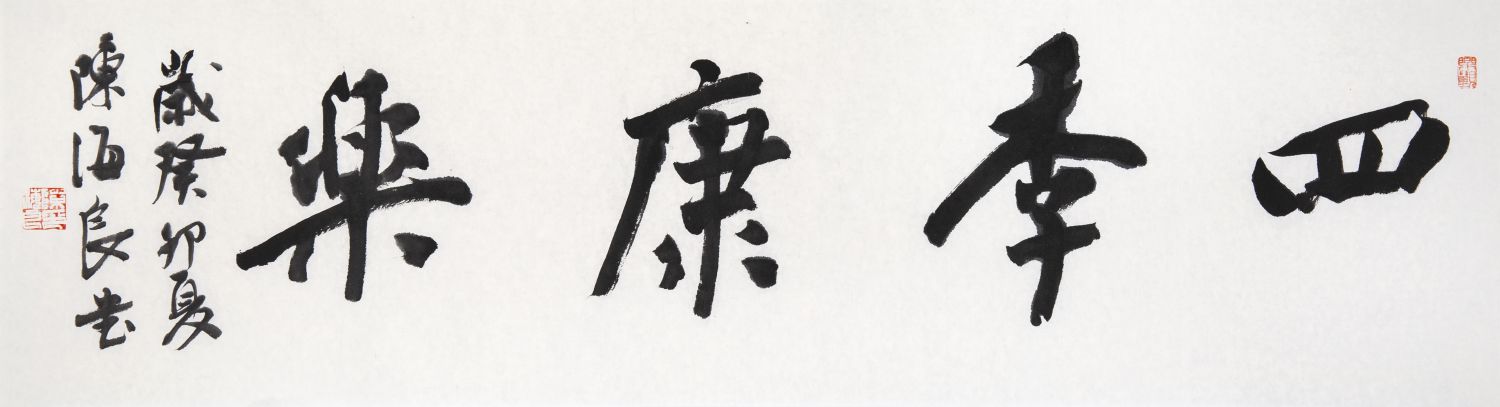 四季康樂
歲癸卯夏
陳海良书